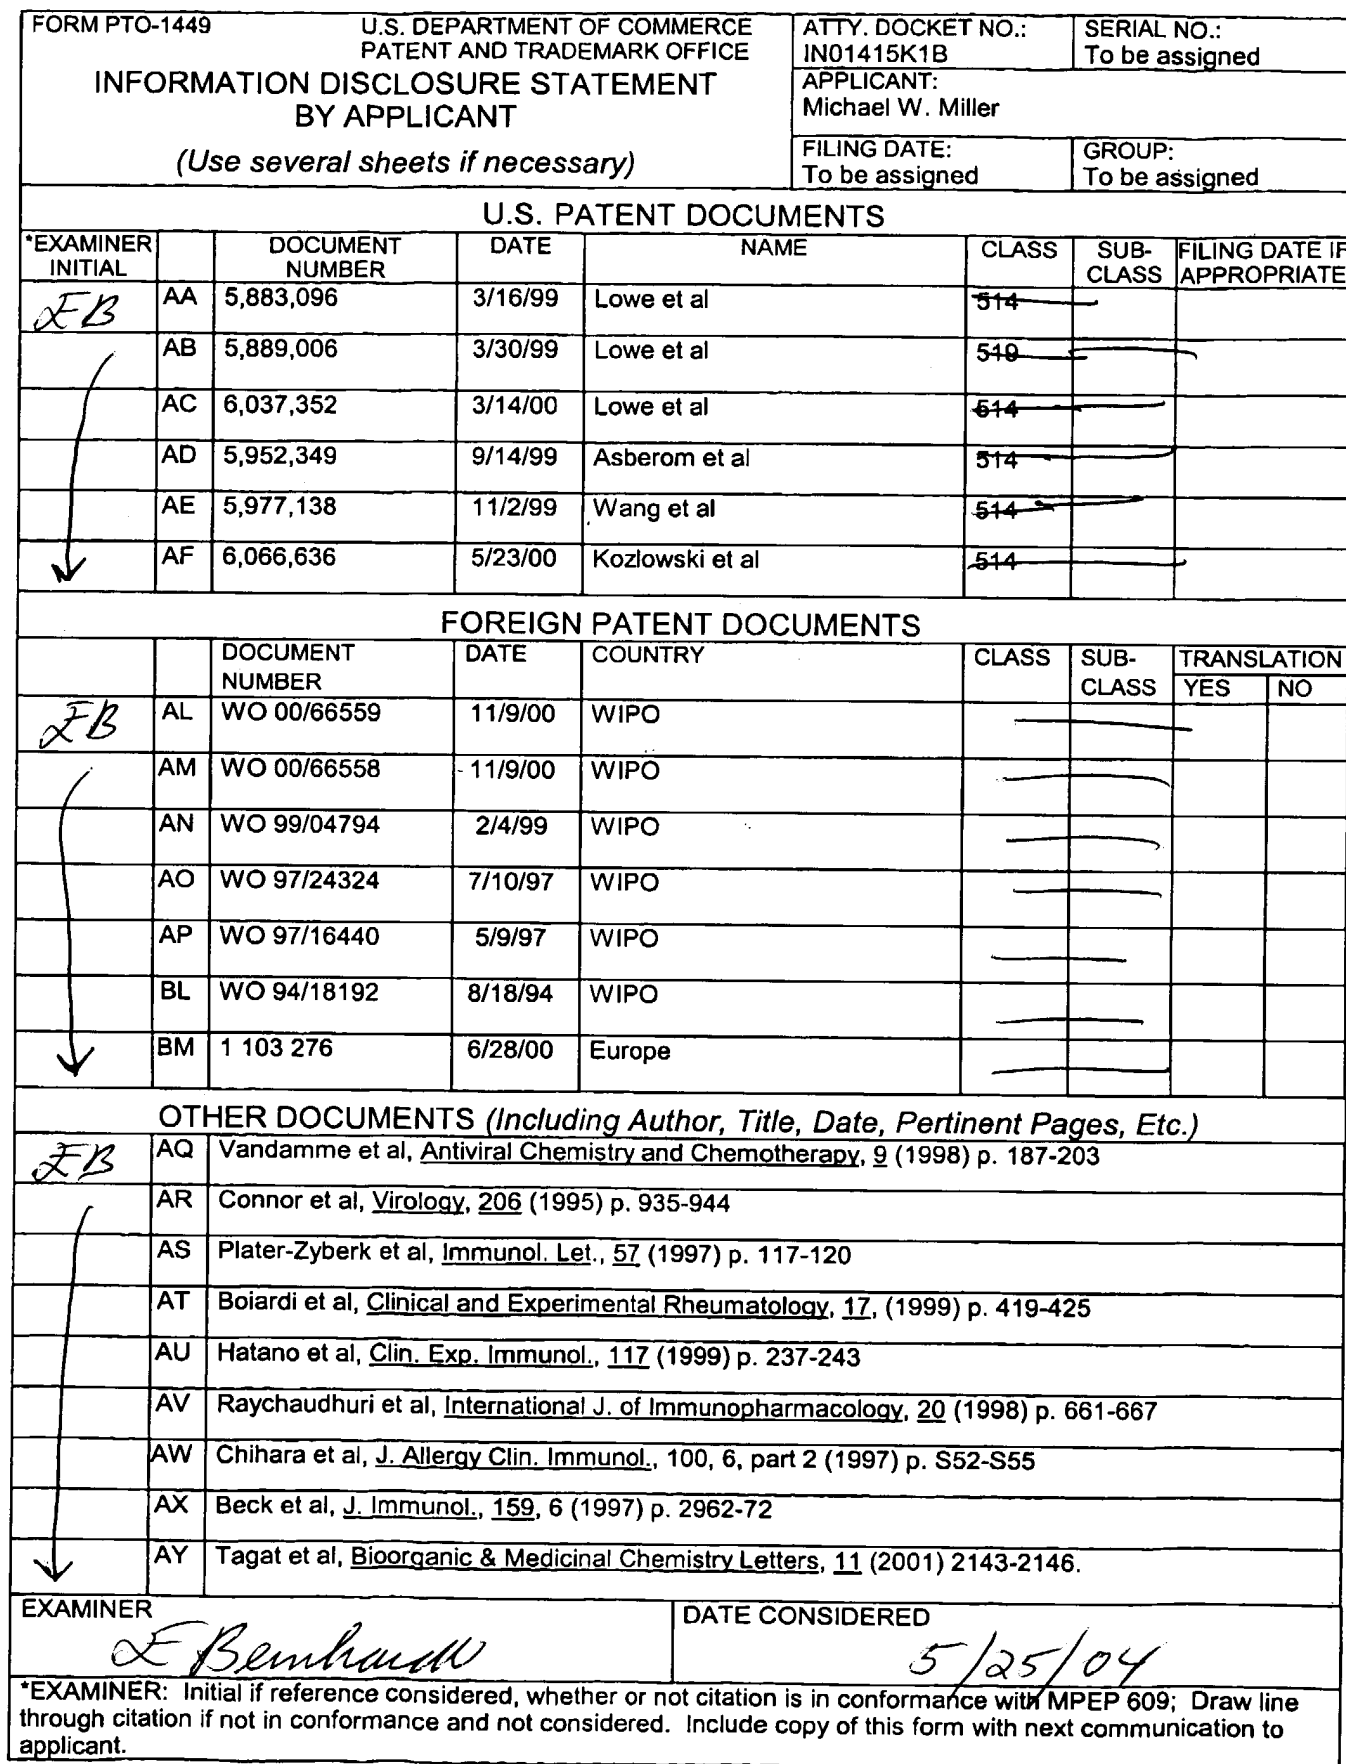 FORM PTO-1449 U.S. DEPARTMENT OF COMMERCE
PATENT AND TRADEMARK OFFICE
INFORMATION DISCLOSURE STATEMENT
BY APPLICANT
(Use several sheets if necessary)
ATTY. DOCKET NO.: SERIAL NO.:
IN01415K1B To be assigned
APPLICANT:
Michael W. Miller
FILING DATE: GROUP:
To be assigned To be assigned
U.S. PATENT DOCUMENTS
*EXAMINER DOCUMENT DATE NAME CLASS SUB- FILING DATE IF
INITIAL NUMBER CLASS APPROPRIATE
EB AA 5,883,096 3/16/99 Lowe et al 514
AB 5,889,006 3/30/99 Lowe et al 519
AC 6,037,352 3/14/00 Lowe et al 514
AD 5,952,349 9/14/99 Asberom et al 514
AE 5,977,138 11/2/99 Wang et al 514
AF 6,066,636 5/23/00 Kozlowski et al 514
FOREIGN PATENT DOCUMENTS
DOCUMENT DATE COUNTRY CLASS SUB- TRANSLATION
NUMBER CLASS YES NO
EB AL WO 00/66559 11/9/00 WIPO
AM WO 00/66558 11/9/00 WIPO
AN WO 99/04794 2/4/99 WIPO
AO WO 97/24324 7/10/97 WIPO
AP WO 97/16440 5/9/97 WIPO
BL WO 94/18192 8/18/94 WIPO
BM 1 103 276 6/28/00 Europe
OTHER DOCUMENTS (Including Author, Title, Date, Pertinent Pages, Etc.)
EB AQ Vandamme et al, Antiviral Chemistry and Chemotherapy, 9 (1998) p. 187-203
AR Connor et al, Virology, 206 (1995) p. 935-944
AS Plater-Zyberk et al, Immunol. Let., 57 (1997) p. 117-120
AT Boiardi et al, Clinical and Experimental Rheumatology, 17, (1999) p. 419-425
AU Hatano et al, Clin. Exp. Immunol., 117 (1999) p. 237-243
AV Raychaudhuri et al, International J. of Immunopharmacology, 20 (1998) p. 661-667
AW Chihara et al, J. Allergy Clin. Immunol., 100, 6, part 2 (1997) p. S52-S55
AX Beck et al, J. Immunol., 159, 6 (1997) p. 2962-72
AY Tagat et al, Bioorganic & Medicinal Chemistry Letters, 11 (2001) 2143-2146.
EXAMINER DATE CONSIDERED
E Bernhardt 5/25/04
*EXAMINER: Initial if reference considered, whether or not citation is in conformance with MPEP 609; Draw line
through citation if not in conformance and not considered. Include copy of this form with next communication to
applicant.